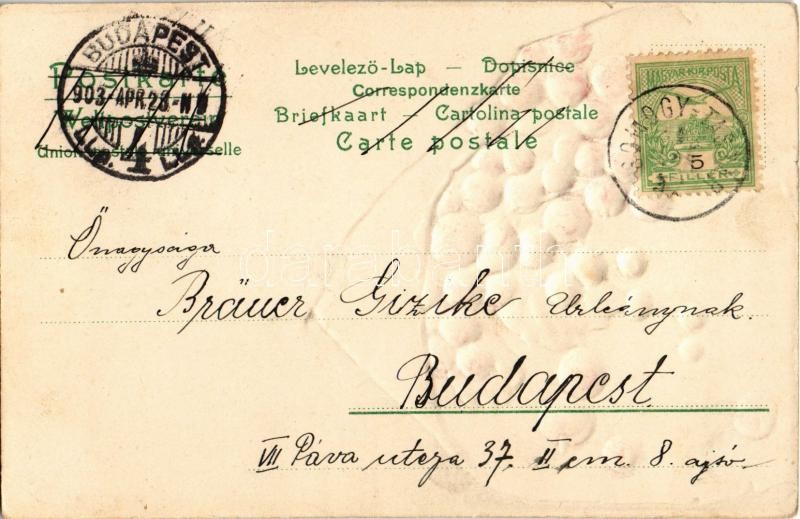 BUDAPEST
903 APR 23
4
Postkarte
Weltpostverein
Union postale universelle
Levelező-Lap — Dopisnice
Correspondenzkarte
Briefkaart — Cartolina postale
Carte postale
MAGYAR·KIR·POSTA
5
FILLÉR
SOMOGY
Őnagysága
Bräuer Gizike Urleánynak.
Budapest
VII Páva utcza 37. II em. 8. ajsó.
darabanth